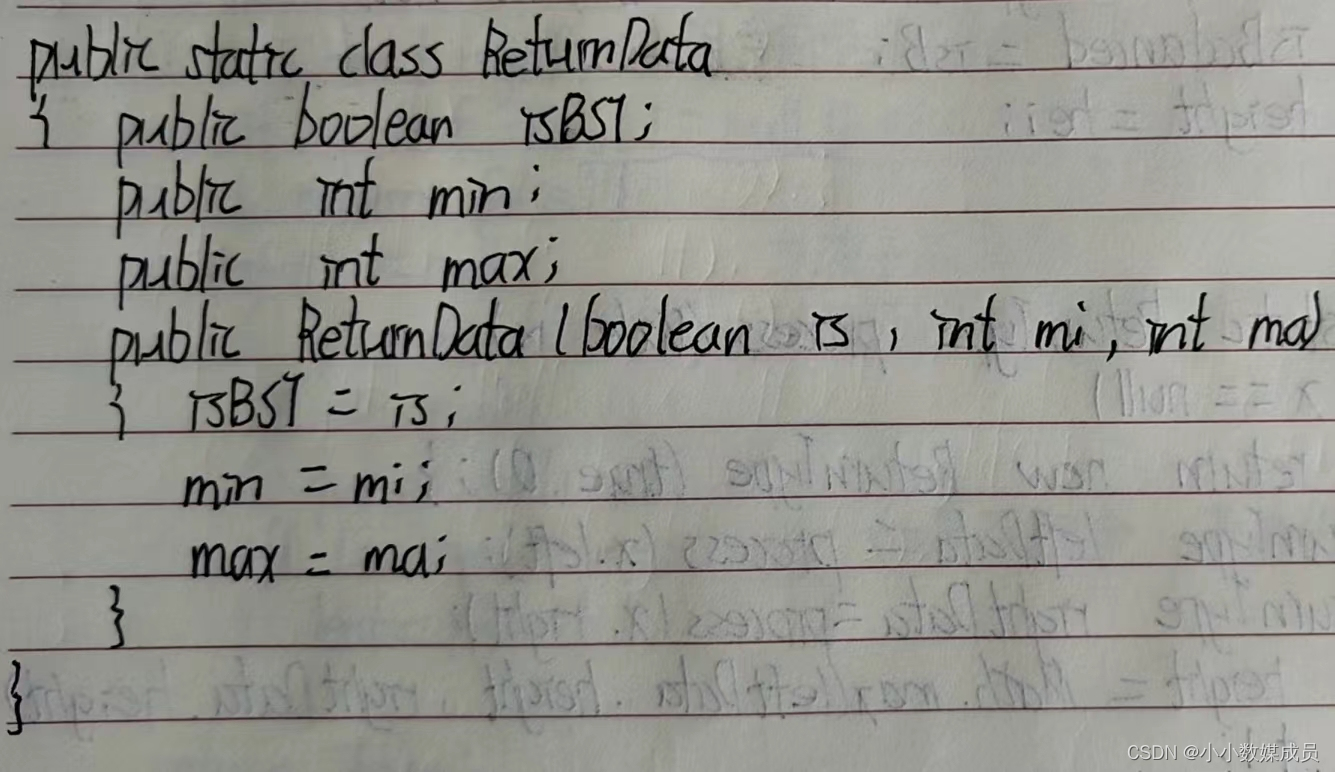 public static class ReturnData
{ public boolean isBST;
public int min;
public int max;
public ReturnData (boolean is, int mi, int ma)
{ isBST = is;
min = mi;
max = ma;
}
}
CSDN @小小数媒成员